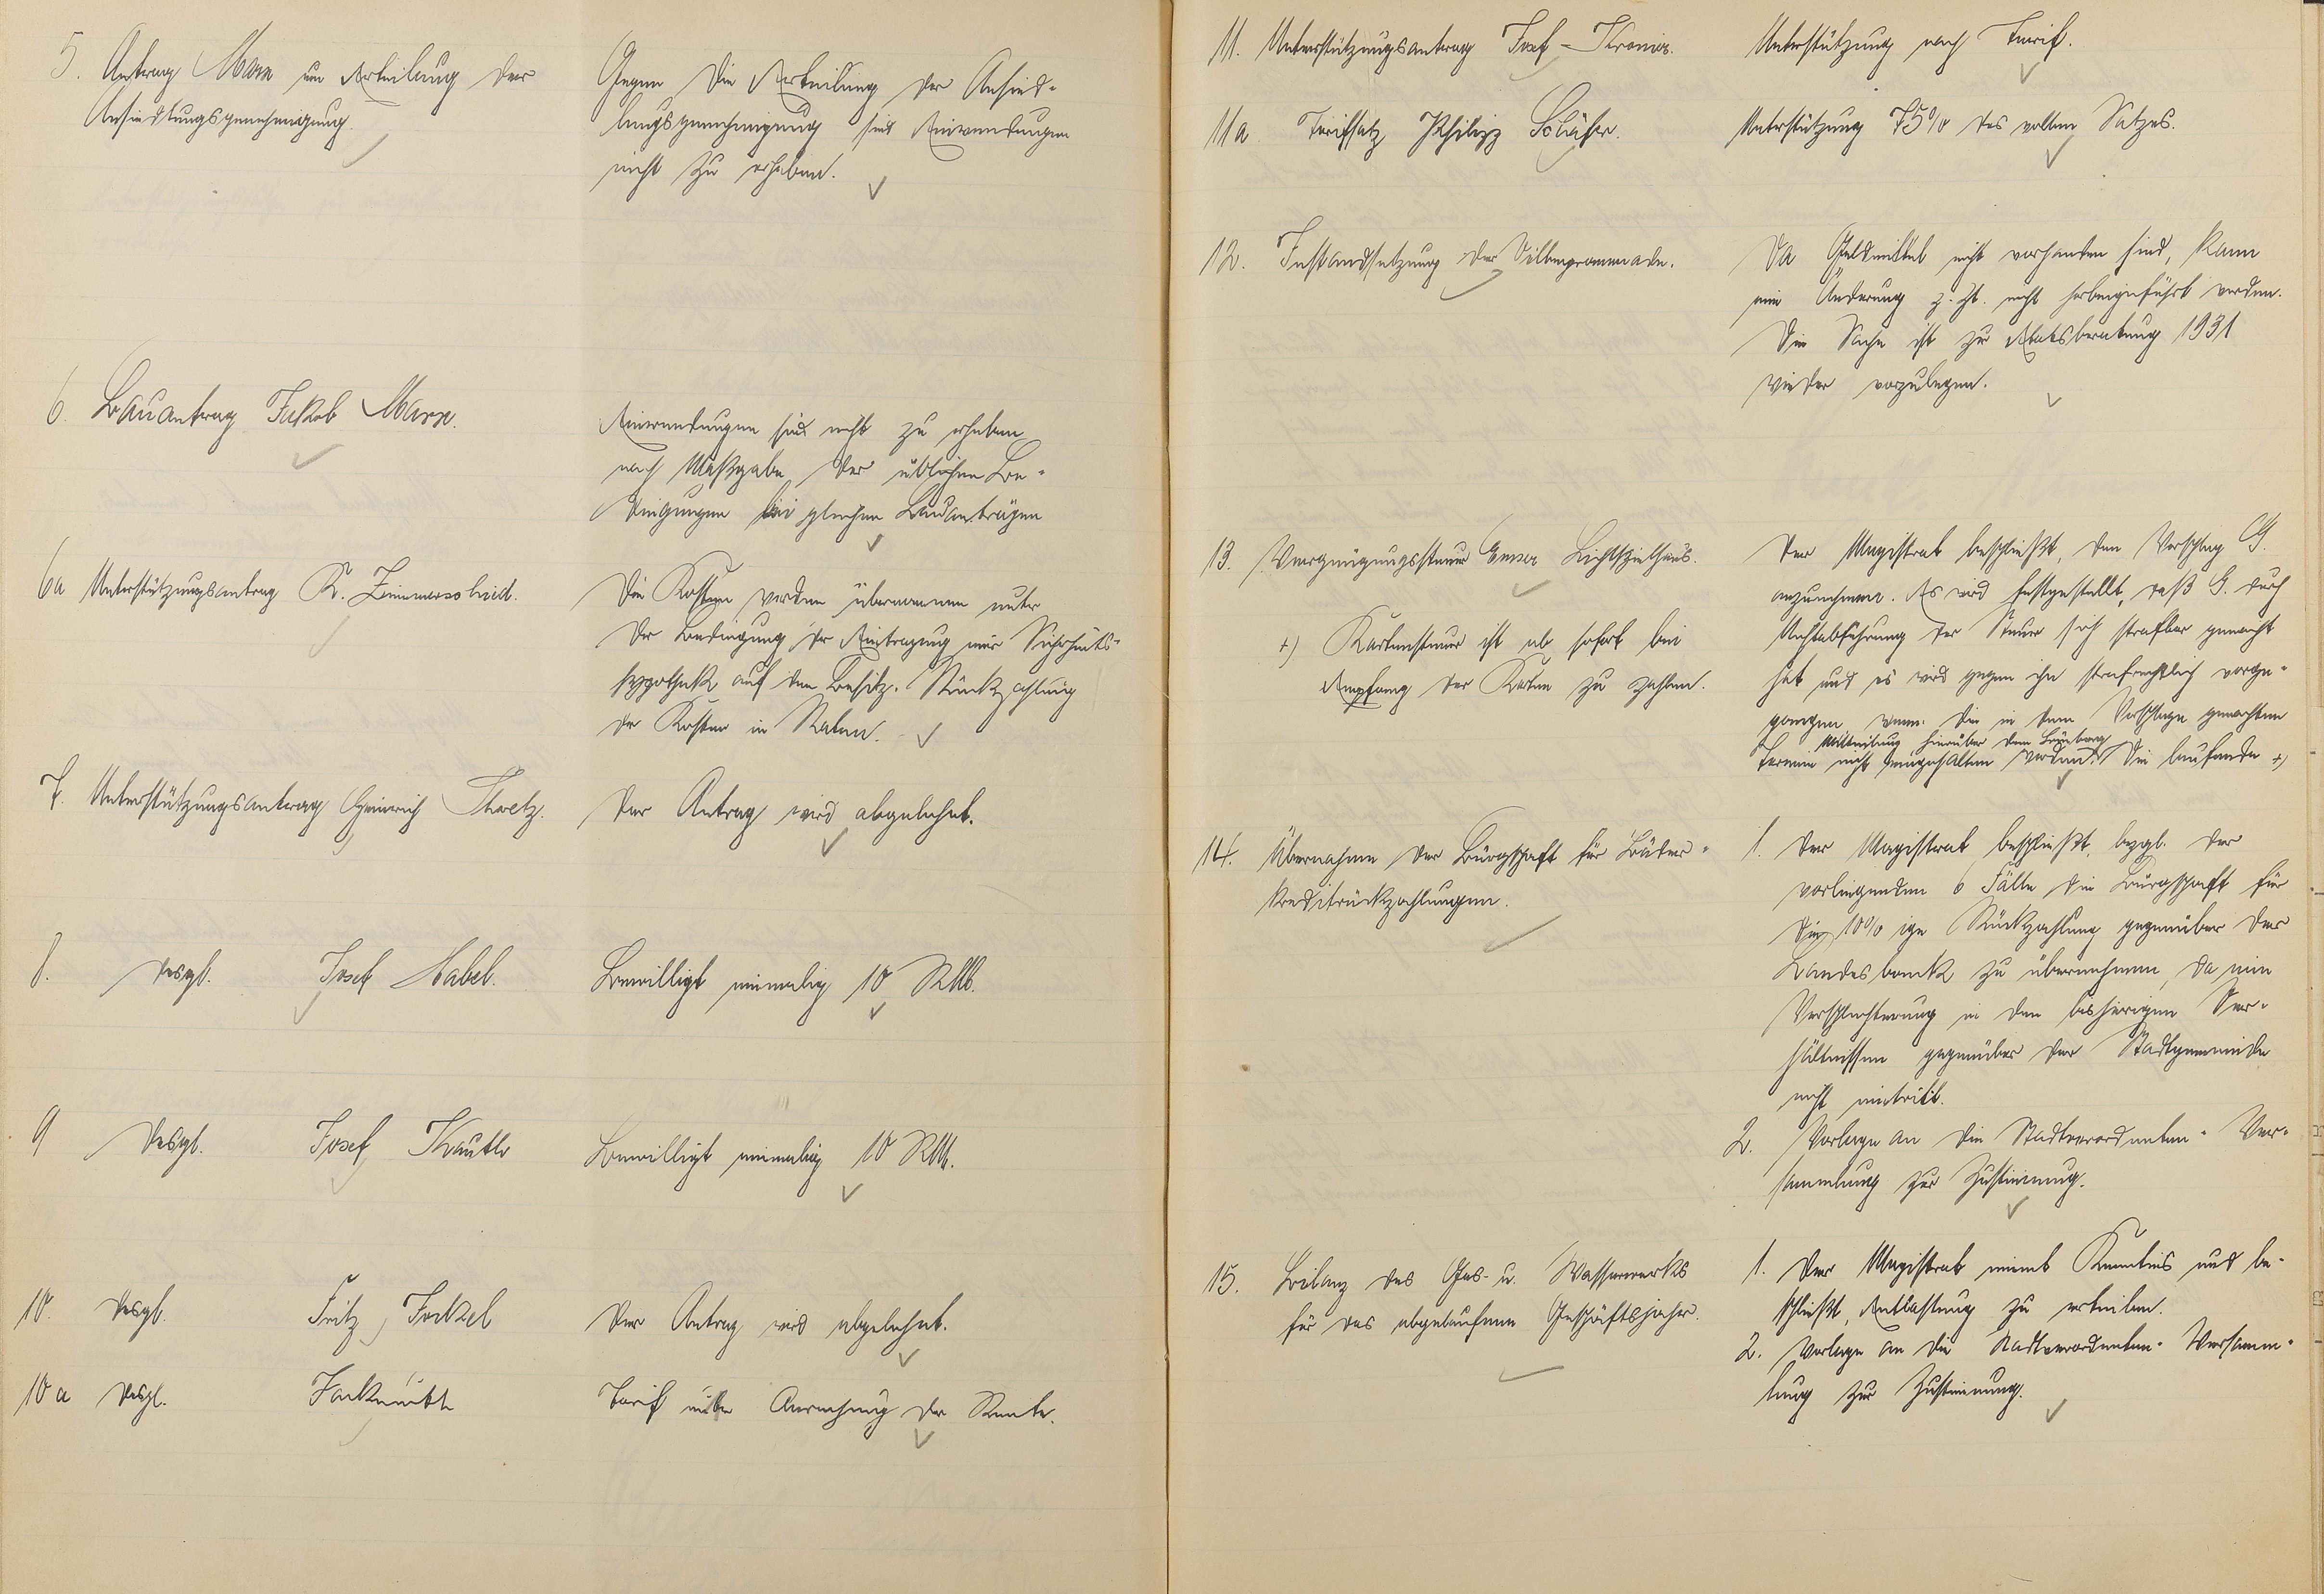 5. Antrag Marx um Erteilung der
Ansiedlungsgenehmigung.
Gegen die Erteilung der Ansied-
lungsgenehmigung sind Einwendungen
nicht zu erheben.
6. Bauantrag Jakob Marx.
Einwendungen sind nicht zu erheben
nach Maßgabe der üblichen Be-
dingungen bei gleichen Bauanträgen
6a Unterstützungsantrag K. Zimmerscheid.
Die Kosten werden übernommen unter
der Bedingung der Eintragung einer Sicherheits-
hypothek auf den Besitz. Rückzahlung
der Kosten in Raten.
7. Unterstützungsantrag Heinrich
Der Antrag wird abgelehnt.
8. desgl. Josef Habel.
Bewilligt einmalig 10 RM.
9 desgl. Josef
Bewilligt einmalig 10 RM.
10. desgl. Fritz
Der Antrag wird abgelehnt.
10a desgl.
Tarif unter Anrechnung der Rente.
11. Unterstützungsantrag Josef
Unterstützung nach Tarif.
11a Tarifsatz Philipp Schäfer.
Unterstützung 75% des vollen Satzes.
12. Instandsetzung der Silberpromenade.
Da Geldmittel nicht vorhanden sind, kann
eine Änderung z. Zt. nicht herbeigeführt werden.
Die Sache ist zur Etatsberatung 1931
wieder vorzulegen.
13. Vergnügungssteuer Emser Lichtspielhaus.
Der Magistrat beschließt, den Vorschlag G.
anzunehmen. Es wird festgestellt, daß G. durch
Nichtabführung der Steuer sich strafbar gemacht
hat und es wird gegen ihn strafrechtlich vorge-
gangen, wenn die in dem Vorschlage gemachten
Mitteilung hierüber dem
Termine nicht eingehalten werden. Die laufende +)
+) Kartensteuer ist ab sofort bei
Empfang der Karten zu zahlen.
14. Übernahme der Bürgschaft für Bäder-
kreditrückzahlungen.
1. Der Magistrat beschließt, bezgl. der
vorliegenden 6 Fälle die Bürgschaft für
die 10% ige Rückzahlung gegenüber der
Landesbank zu übernehmen, da eine
Verschlechterung in den bisherigen Ver-
hältnissen gegenüber der Stadtgemeinde
nicht eintritt.
2. Vorlage an die Stadtverordneten-Ver-
sammlung zur Zustimmung.
15. Bilanz des Gas- u. Wasserwerks
für das abgelaufene Geschäftsjahr.
1. Der Magistrat nimmt Kenntnis und be-
schließt, Entlastung zu erteilen.
2. Vorlage an die Stadtverordneten-Versamm-
lung zur Zustimmung.